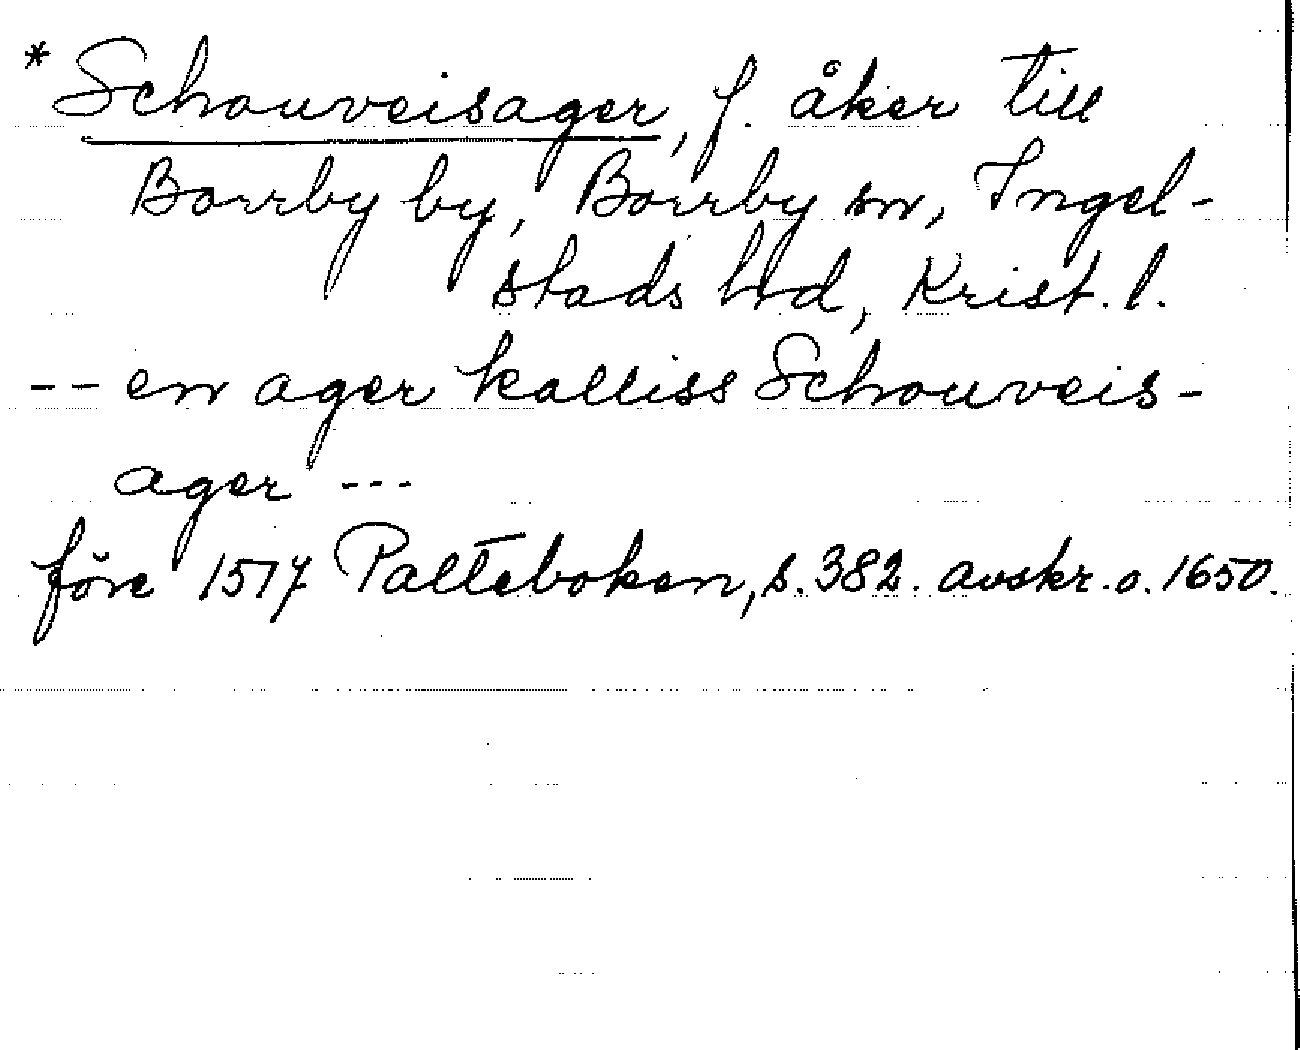 * Schouveisager, f. åker till
Borrby by, Borrby sn, Ingel-
stads hd, Krist. l.
-- en ager kalliss Schouveis-
ager ---
före 1517 Palteboken, s. 382. avskr. o. 1650.